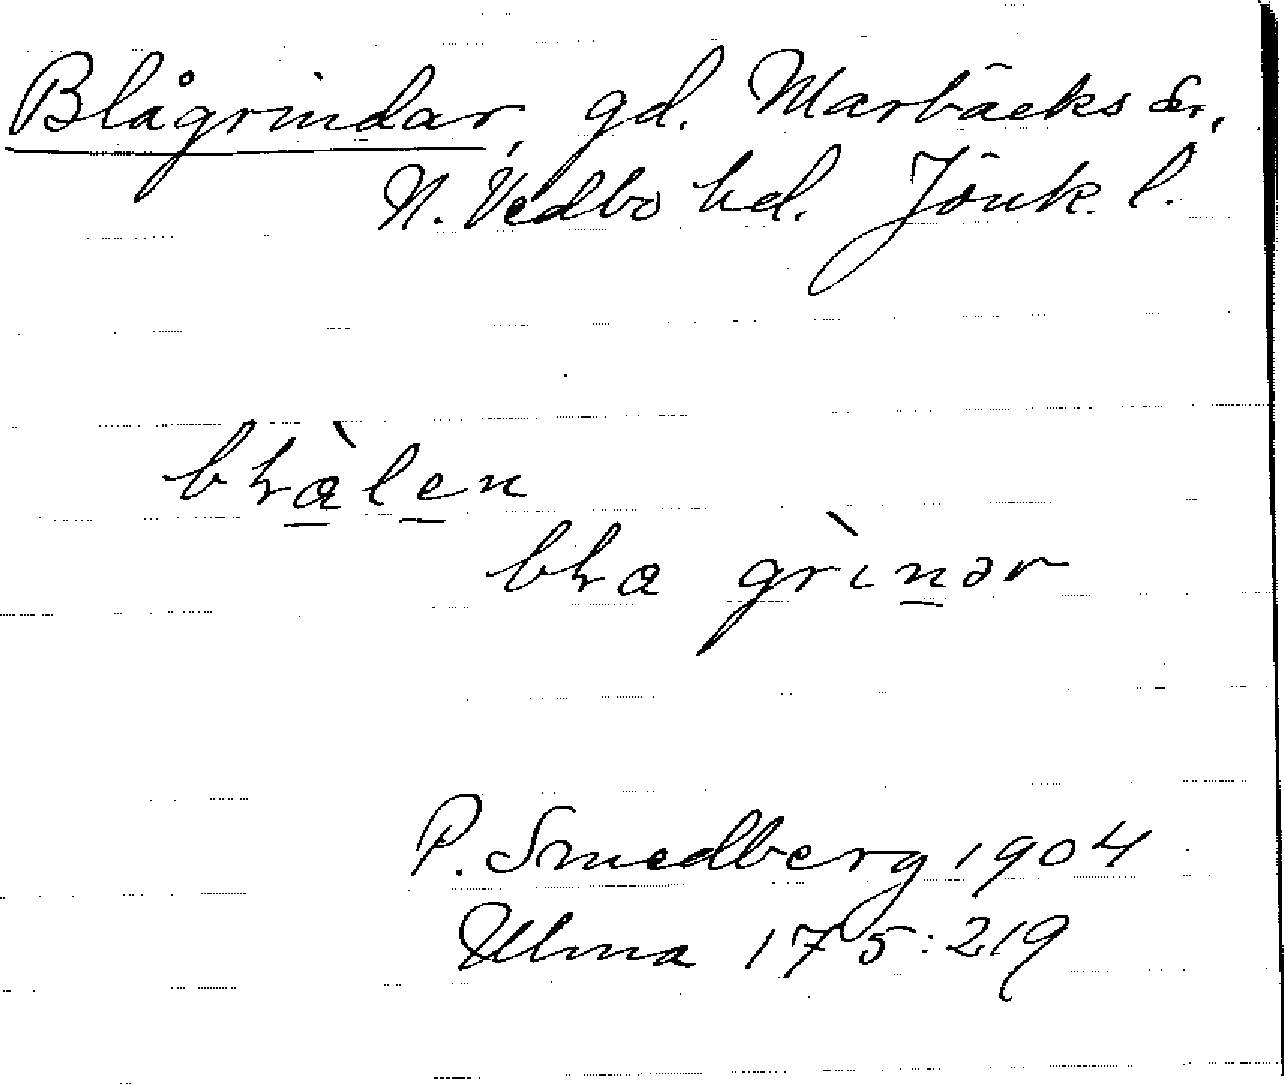 Blågrindar, gd. Marbäcks sn,
N. Vedbo hd. Jönk. l.
bɫàlen
bɫa grìnər
P. Smedberg 1904
Ulma 175:219